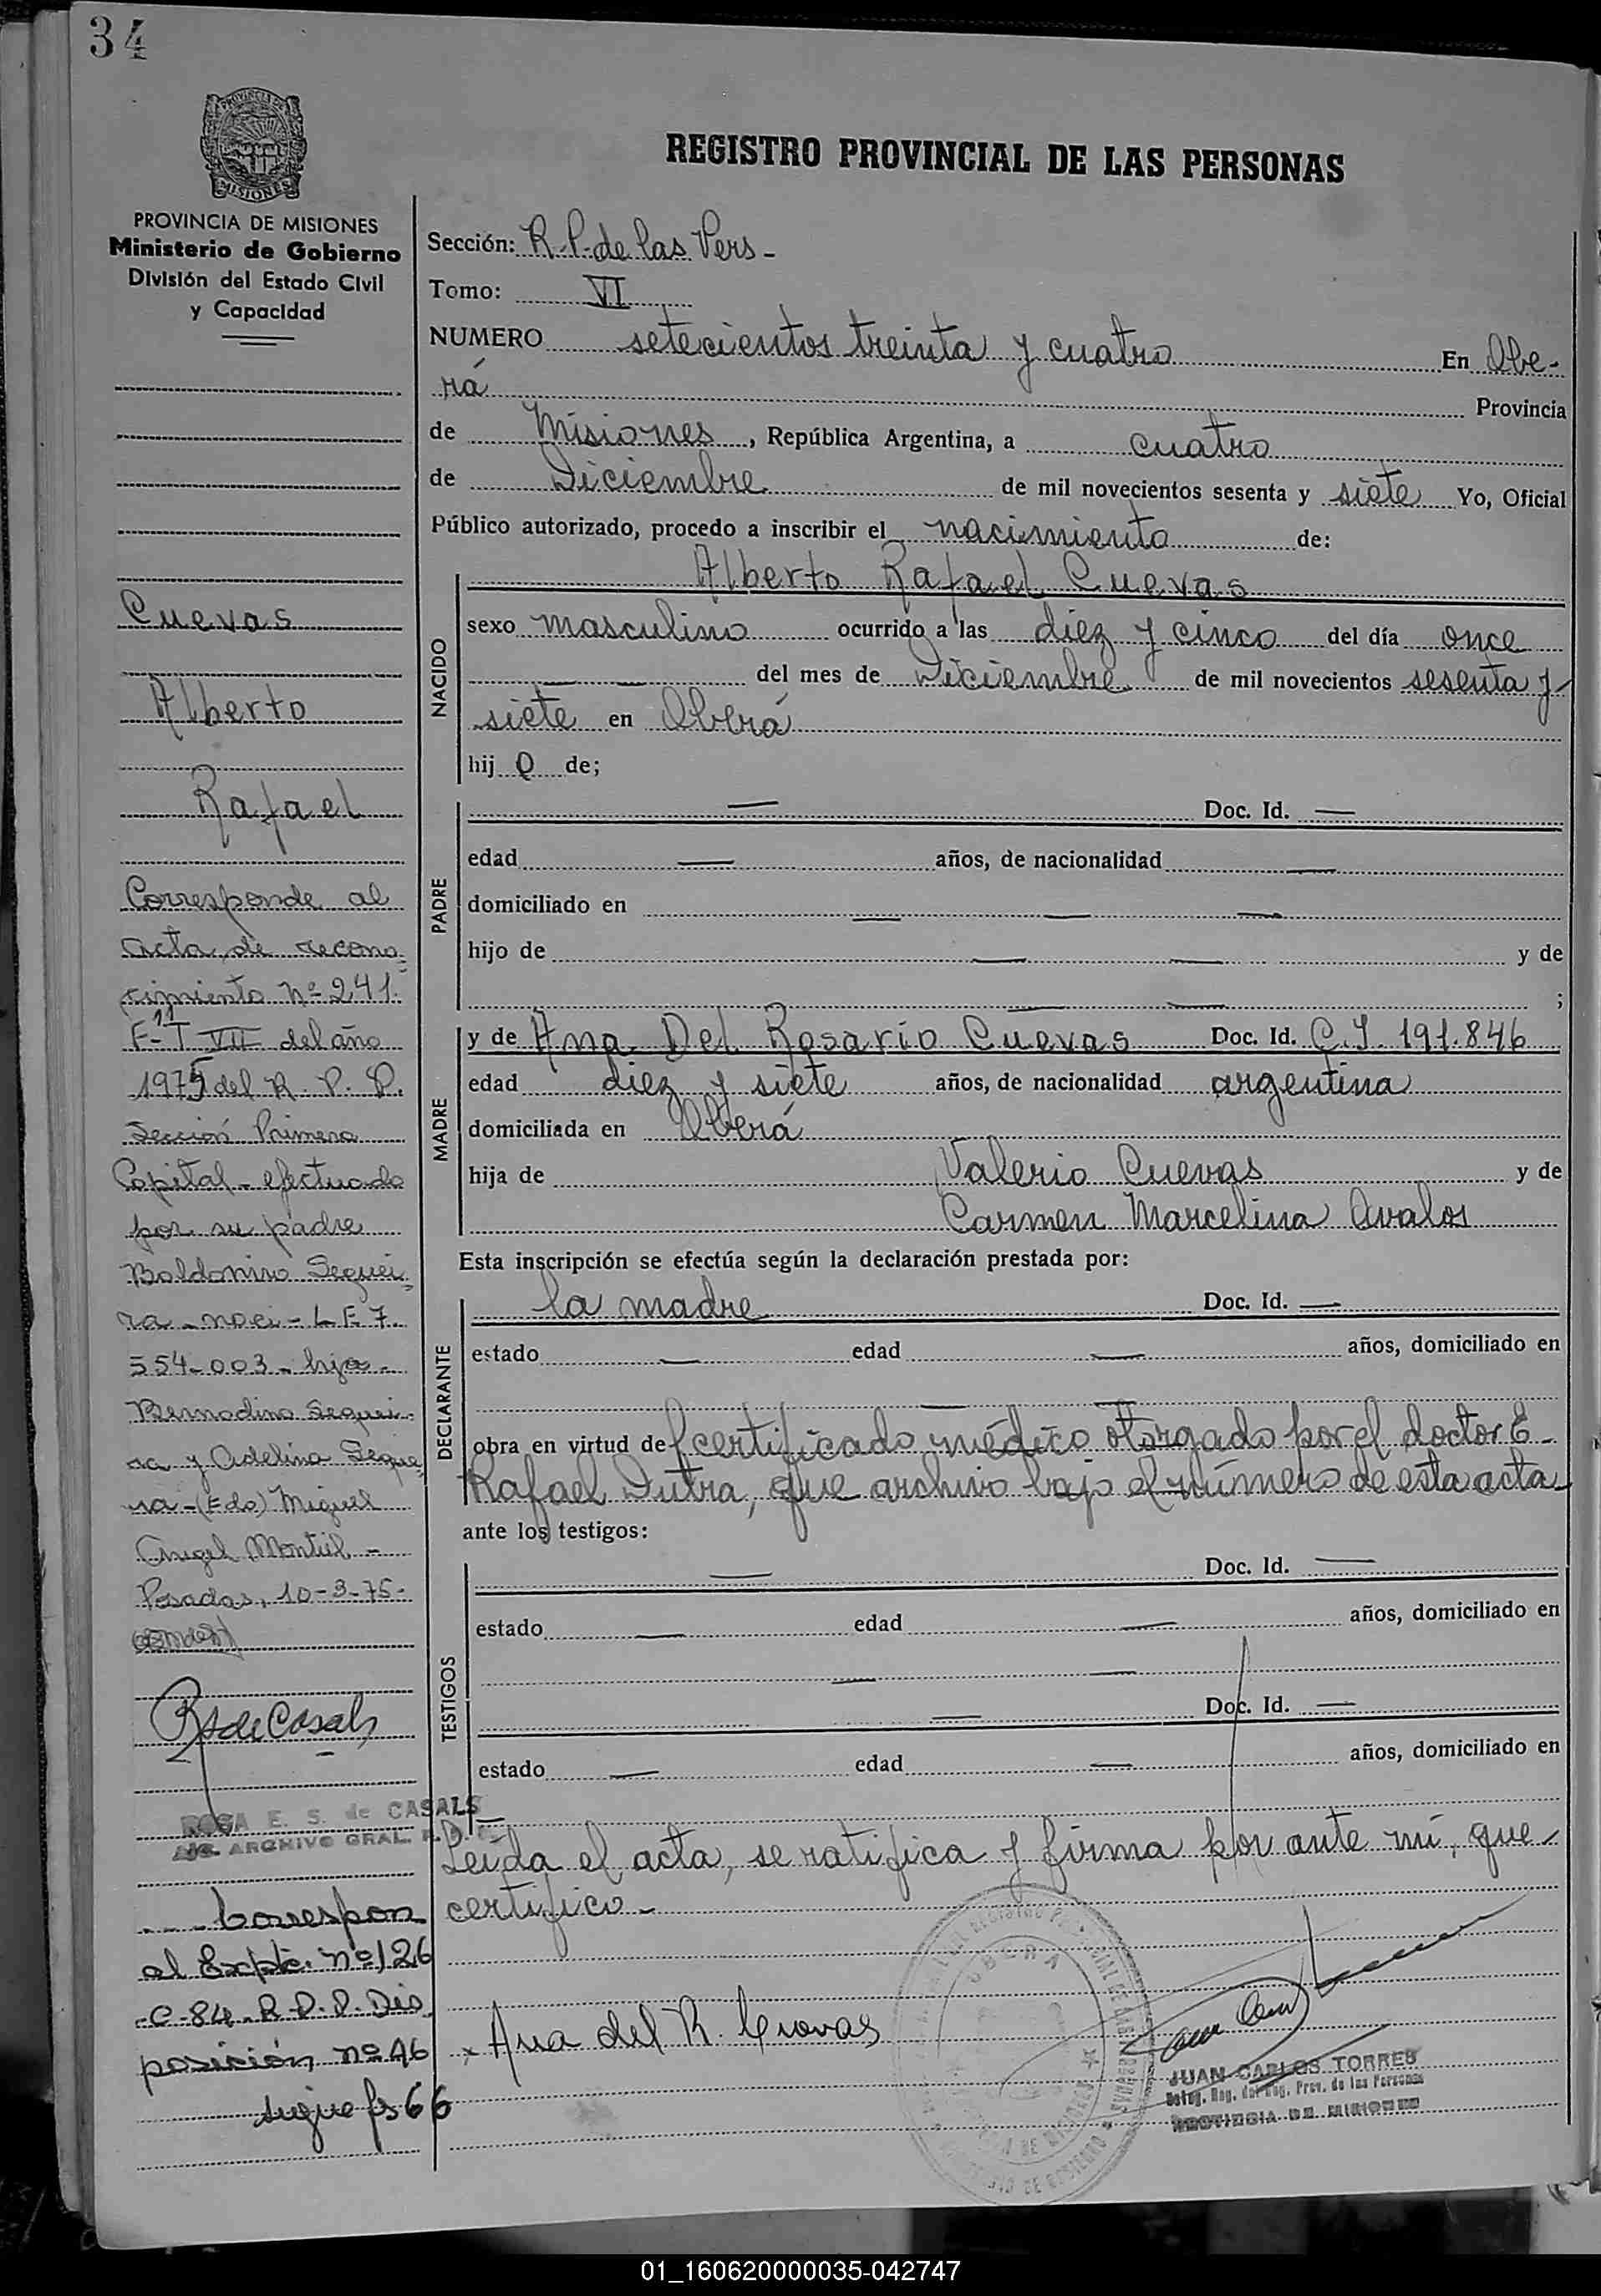 34
PROVINCIA DE MISIONES
MISIONES
PROVINCIA DE MISIONES
Ministerio de Gobierno
División del Estado Civil
y Capacidad
REGISTRO PROVINCIAL DE LAS PERSONAS
Sección: R.P. de las Pers-
Tomo: VI
NUMERO setecientos treinta y cuatro En Obe-
rá Provincia
de Misiones, República Argentina, a cuatro
de Diciembre de mil novecientos sesenta y siete Yo, Oficial
Público autorizado, procedo a inscribir el nacimiento de:
Alberto Rafael Cuevas
NACIDO
sexo masculino ocurrido a las diez y cinco del día once
del mes de Diciembre de mil novecientos sesenta y
siete en Oberá
hijo de;
PADRE
Doc. Id.
edad años, de nacionalidad
domiciliado en
hijo de y de
;
MADRE
y de Ana Del Rosario Cuevas Doc. Id. C.I. 191.846
edad diez y siete años, de nacionalidad argentina
domiciliada en Oberá
hija de Valerio Cuevas y de
Carmen Marcelina Avalos
Esta inscripción se efectúa según la declaración prestada por:
DECLARANTE
la madre Doc. Id.
estado edad años, domiciliado en
obra en virtud del certificado médico otorgado por el doctor E.
Rafael Dutra, que archivo bajo el número de esta acta
ante los testigos:
TESTIGOS
Doc. Id.
estado edad años, domiciliado en
Doc. Id.
estado edad años, domiciliado en
Leída el acta, se ratifica y firma por ante mí, que
certifico-
Ana del R. Cuevas
OBERA
JUAN CARLOS TORRES
PROVINCIA DE MISIONES
Cuevas
Alberto
Rafael
Corresponde al
acta de recono-
cimiento Nº 241.
Fº11 T VII del año
1975 del R. P. P.
Sección Primera
Capital- efectuado
por su padre
Baldomiro Sequei-
ra - naci - L E 7.
554-003- hijo-
Bernadino Sequei-
ra y Adelina Seque-
ra -(Fdo) Miguel
Angel Montiel-
Posadas, 10-3-75-
RS de Casals
ROSA E. S. de CASALS
ARCHIVO GRAL. R.P.
Correspon
al Expte. nº 126
-C-84-R.P.P. Dis
posición nº 46
sigue fs 66
01_160620000035-042747